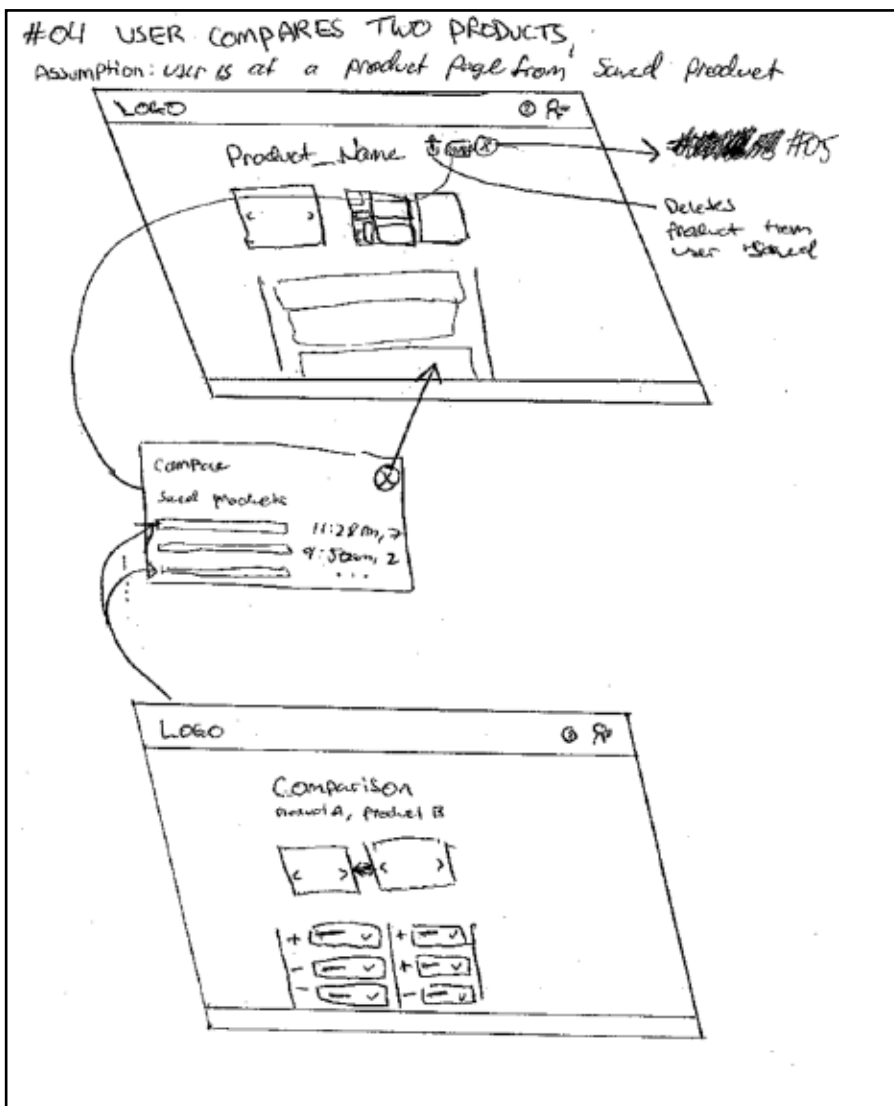 #04 USER COMPARES TWO PRODUCTS,
Assumption: user is at a product page from saved product
LOGO
Product_Name
#05
Deletes
product from
user saved
Compare
Saved products
11:28
LOGO
Comparison
Product A, Product B